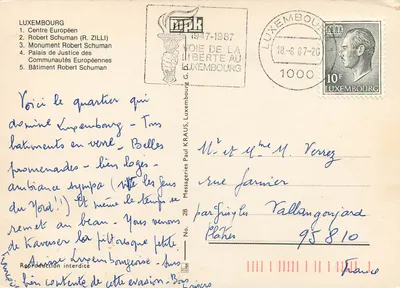 LUXEMBOURG
1. Centre Européen
2. Robert Schuman (R. ZILLI)
3. Monument Robert Schuman
4. Palais de Justice des
Communautés Européennes
5. Bâtiment Robert Schuman
19-7-1987
VOIE DE LA
LIBERTE AU
LUXEMBOURG
LUXEMBOURG
18-8 87-20
1000
10F
LUXEMBOURG
Voici le quartier qui
domine Luxembourg - Tous
batiments en verre - Belles
promenades - bien logés -
ambiance sympa (vive les gens
du Nord !) Et même le temps se
remet au beau - Nous venons
de traverser la pittoresque petite
Suisse Luxembourgeoise -
bien contente de cette evasion - Bons
No. 28 Messageries Paul KRAUS, Luxembourg G.
Mr et Mme M. Verrez
rue
par Vallangoujard
95810
France
Reproduction interdite